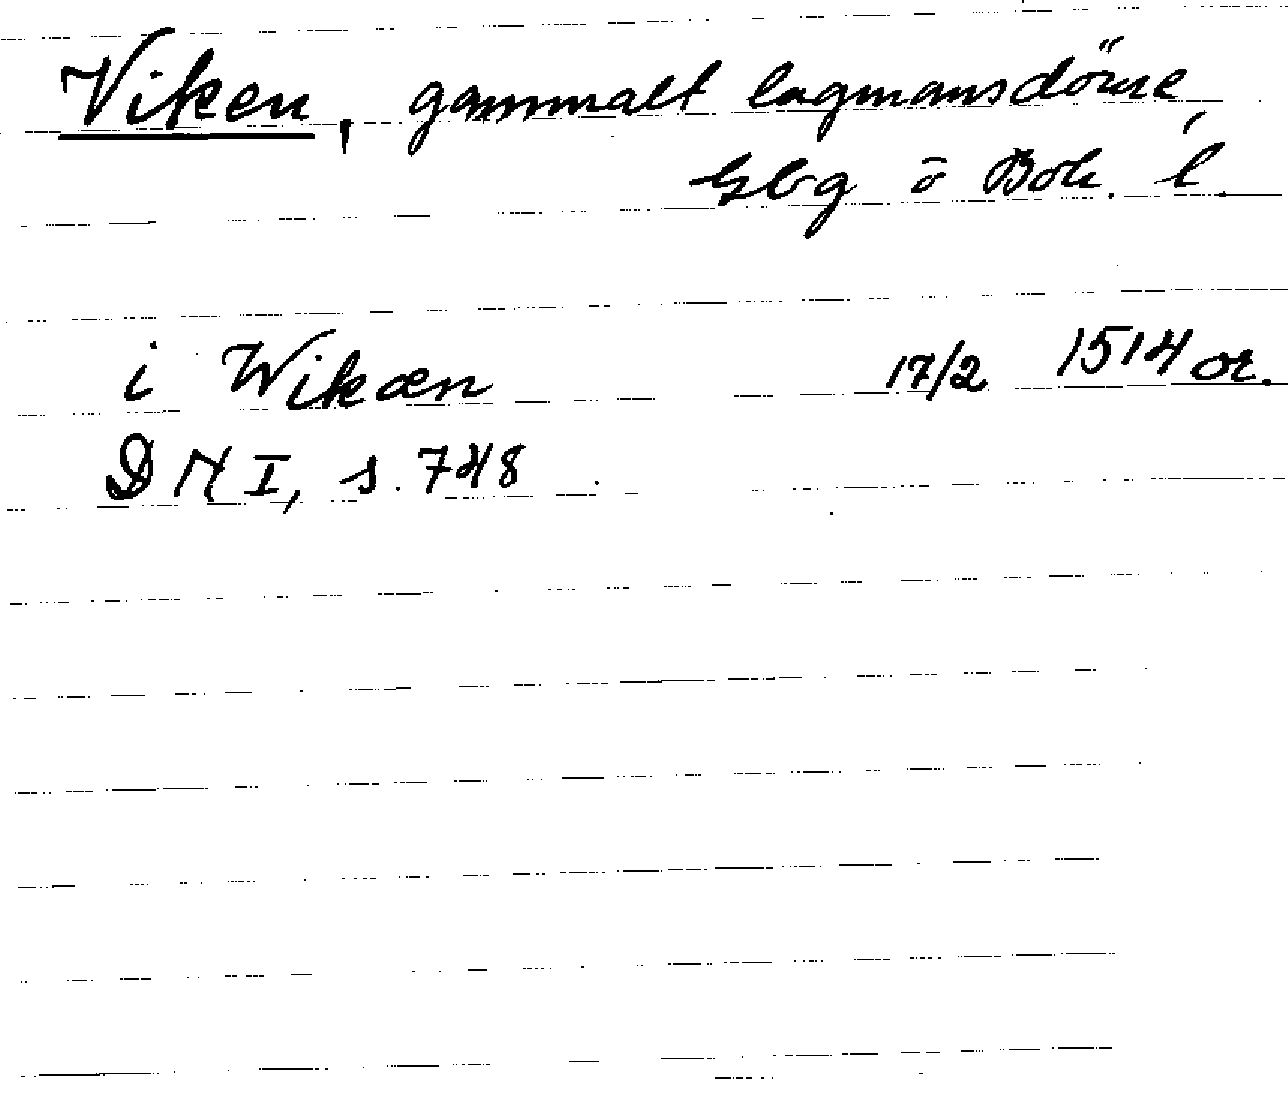 Viken, gammalt lagmansdöme,
Gbg o Boh. l.
i Wikæn 17/2 1514 or.
DN I, s. 748